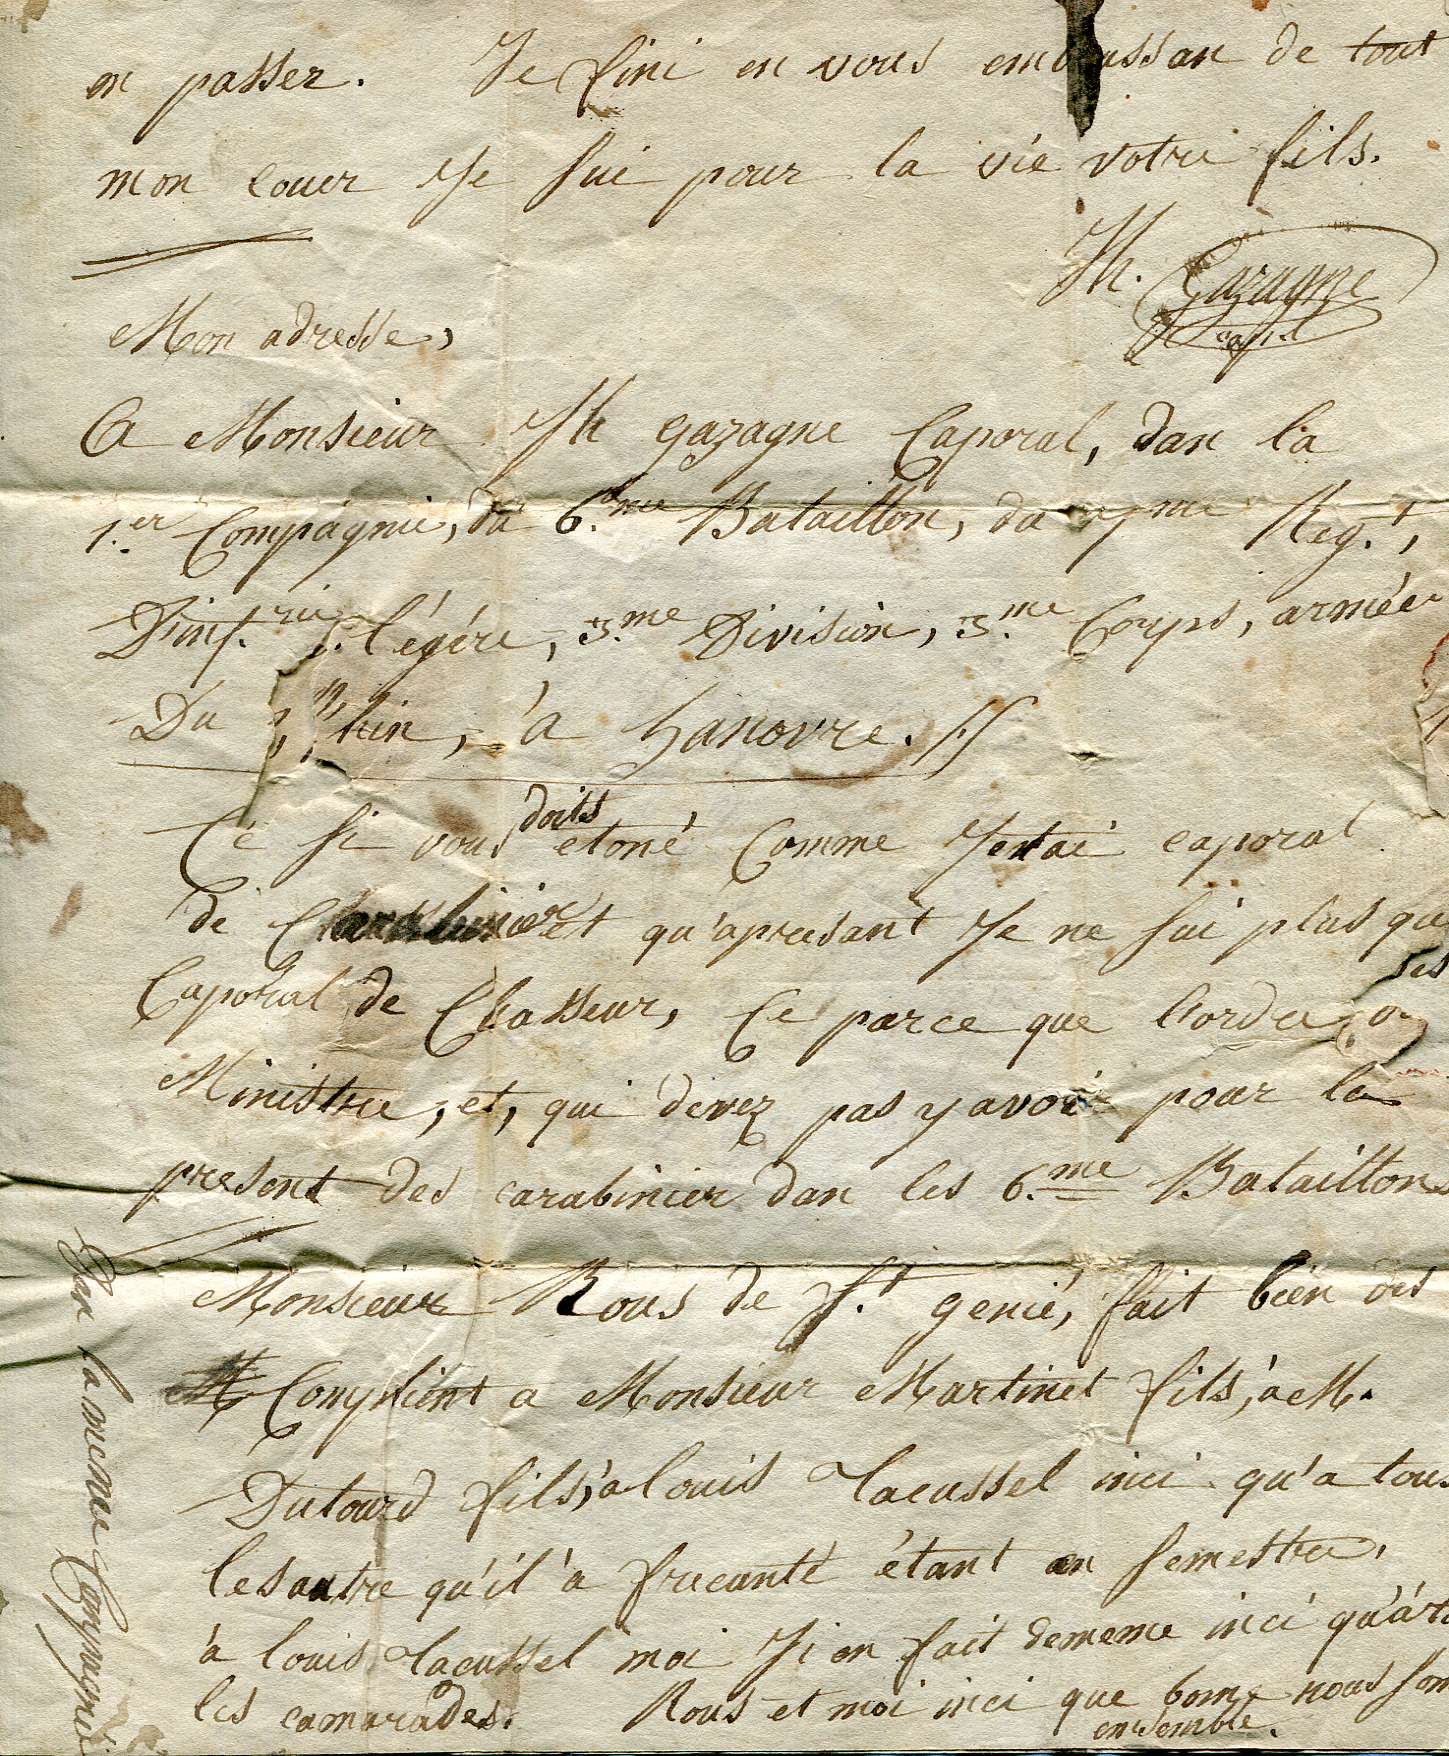 en passer. Je fini en vous embrassan de tout
mon couer Je sui pour la vie votre fils.
Jh. Gazagne
cap.l
Mon adresse,
A Monsieur Jh gazagne Caporal, dan la
1.er Compagnie, du 6.me Bataillon, du 7me Reg.t,
D'inf.rie légére, 3.me Division, 3.me Corps, armée
Du Rhin, à hanovre.
Ce si vous doits etoné Comme Jettai caporal
de Carabinier et qu'apresant Je ne sui plus que
Caporal de Chasseur, Ce parce que l'ordre
des
Ministre, et, qui devez pas y avoir pour le
present des carabinier dan les 6.me Bataillon
Monsieur Rous de St. genié, fait bien des
Complient a Monsieur Martinet fils, a M.
Dutourd fils, a louis Lacussel inci qu'a tous
les autre qu'il à frecanté étant en semestre,
à louis Lacussel moi Ji en fait dememe inci qu'à
les camarades. Rous et moi inci que bome nous som
ensemble.
Dan la meme Compagnie